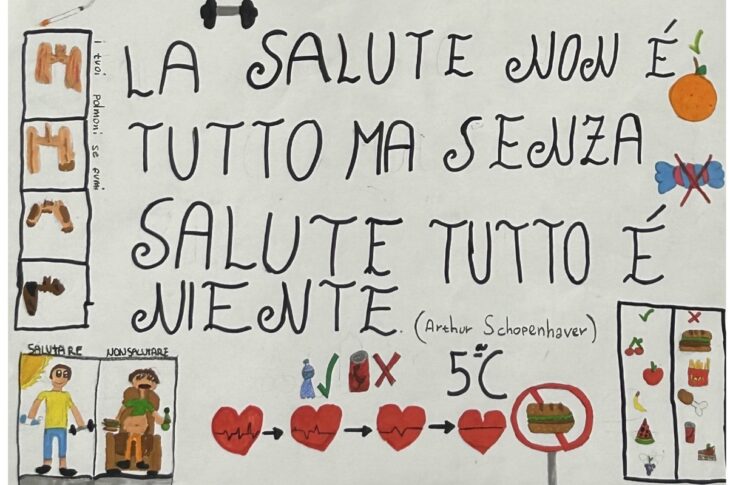 LA SALUTE NON É
TUTTO MA SENZA
SALUTE TUTTO É
NIENTE.
(Arthur Schopenhaver)
i tuoi polmoni se fumi
SALUTARE
NON SALUTARE
5ªC